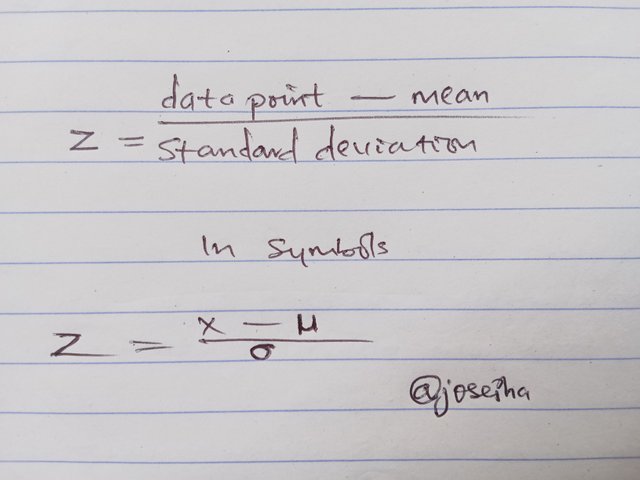 Z = data point — mean / standard deviation
In symbols
Z = x — μ / σ
@joseiha